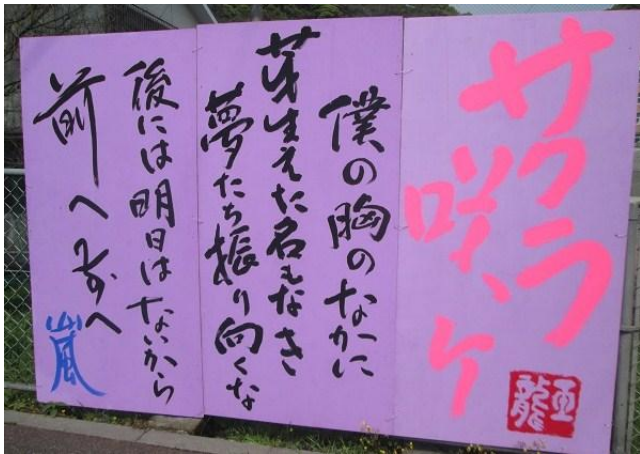 サクラ
咲ケ
僕の胸のなかに
芽生えた名もなき
夢たち振り向くな
後には明日はないから
前へ前へ
嵐